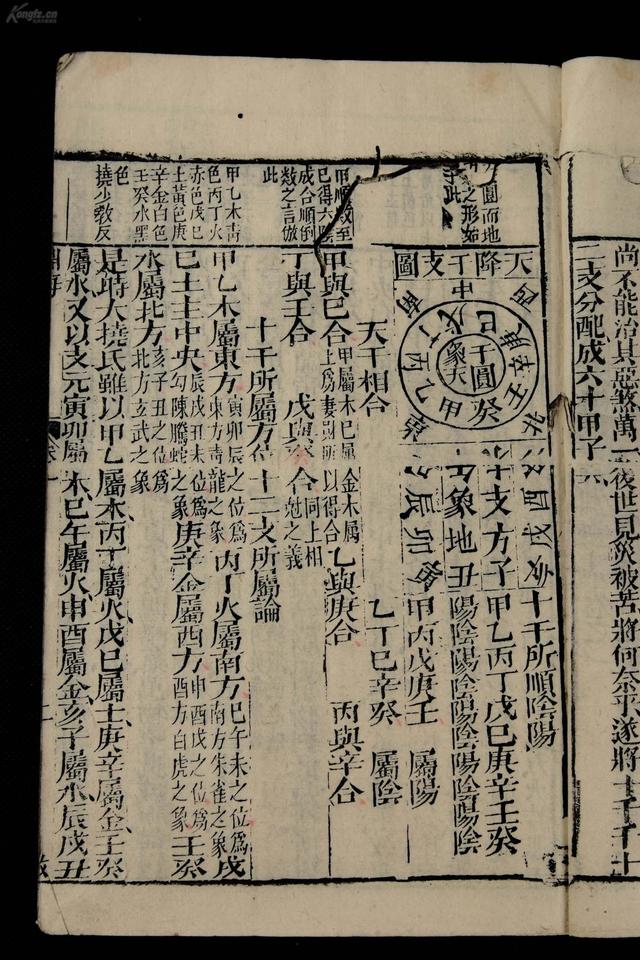 Kongfz.cn
尚不能治其惡煞萬一後世見災被苦將何奈乎遂將十千十
二支分配成六十甲子
圓而地
之形如
此
甲順數至
已得六
成合順倒
數之言倣
此
甲乙木青
色丙丁火
赤色戊己
土黃色庚
辛金白色
壬癸水黑
色
撓少教反
天降干支圖
干圓象天
十支方
象地
十干所順陰陽
甲乙丙丁戊己庚辛壬癸
陽陰陽陰陽陰陽陰陽陰
甲丙戊庚壬 屬陽
乙丁己辛癸 屬陰
天干相合
甲與己合 甲屬木己屬土 金木屬 乙與庚合 丙與辛合
丁與壬合 戊與癸合 同上相尅之義
十干所屬方位 十二支所屬論
甲乙木屬東方 寅卯辰之位為東方青龍之象 丙丁火屬南方 巳午未之位為南方朱雀之象 戊
己土主中央 辰戌丑未位為勾陳螣蛇之象 庚辛金屬西方 申酉戌之位為西方白虎之象 壬癸
水屬北方 亥子丑之位為北方玄武之象
是時大撓氏雖以甲乙屬木丙丁屬火戊己屬土庚辛屬金壬癸
屬水又以支元寅卯屬木巳午屬火申酉屬金亥子屬水辰戌丑
淵海